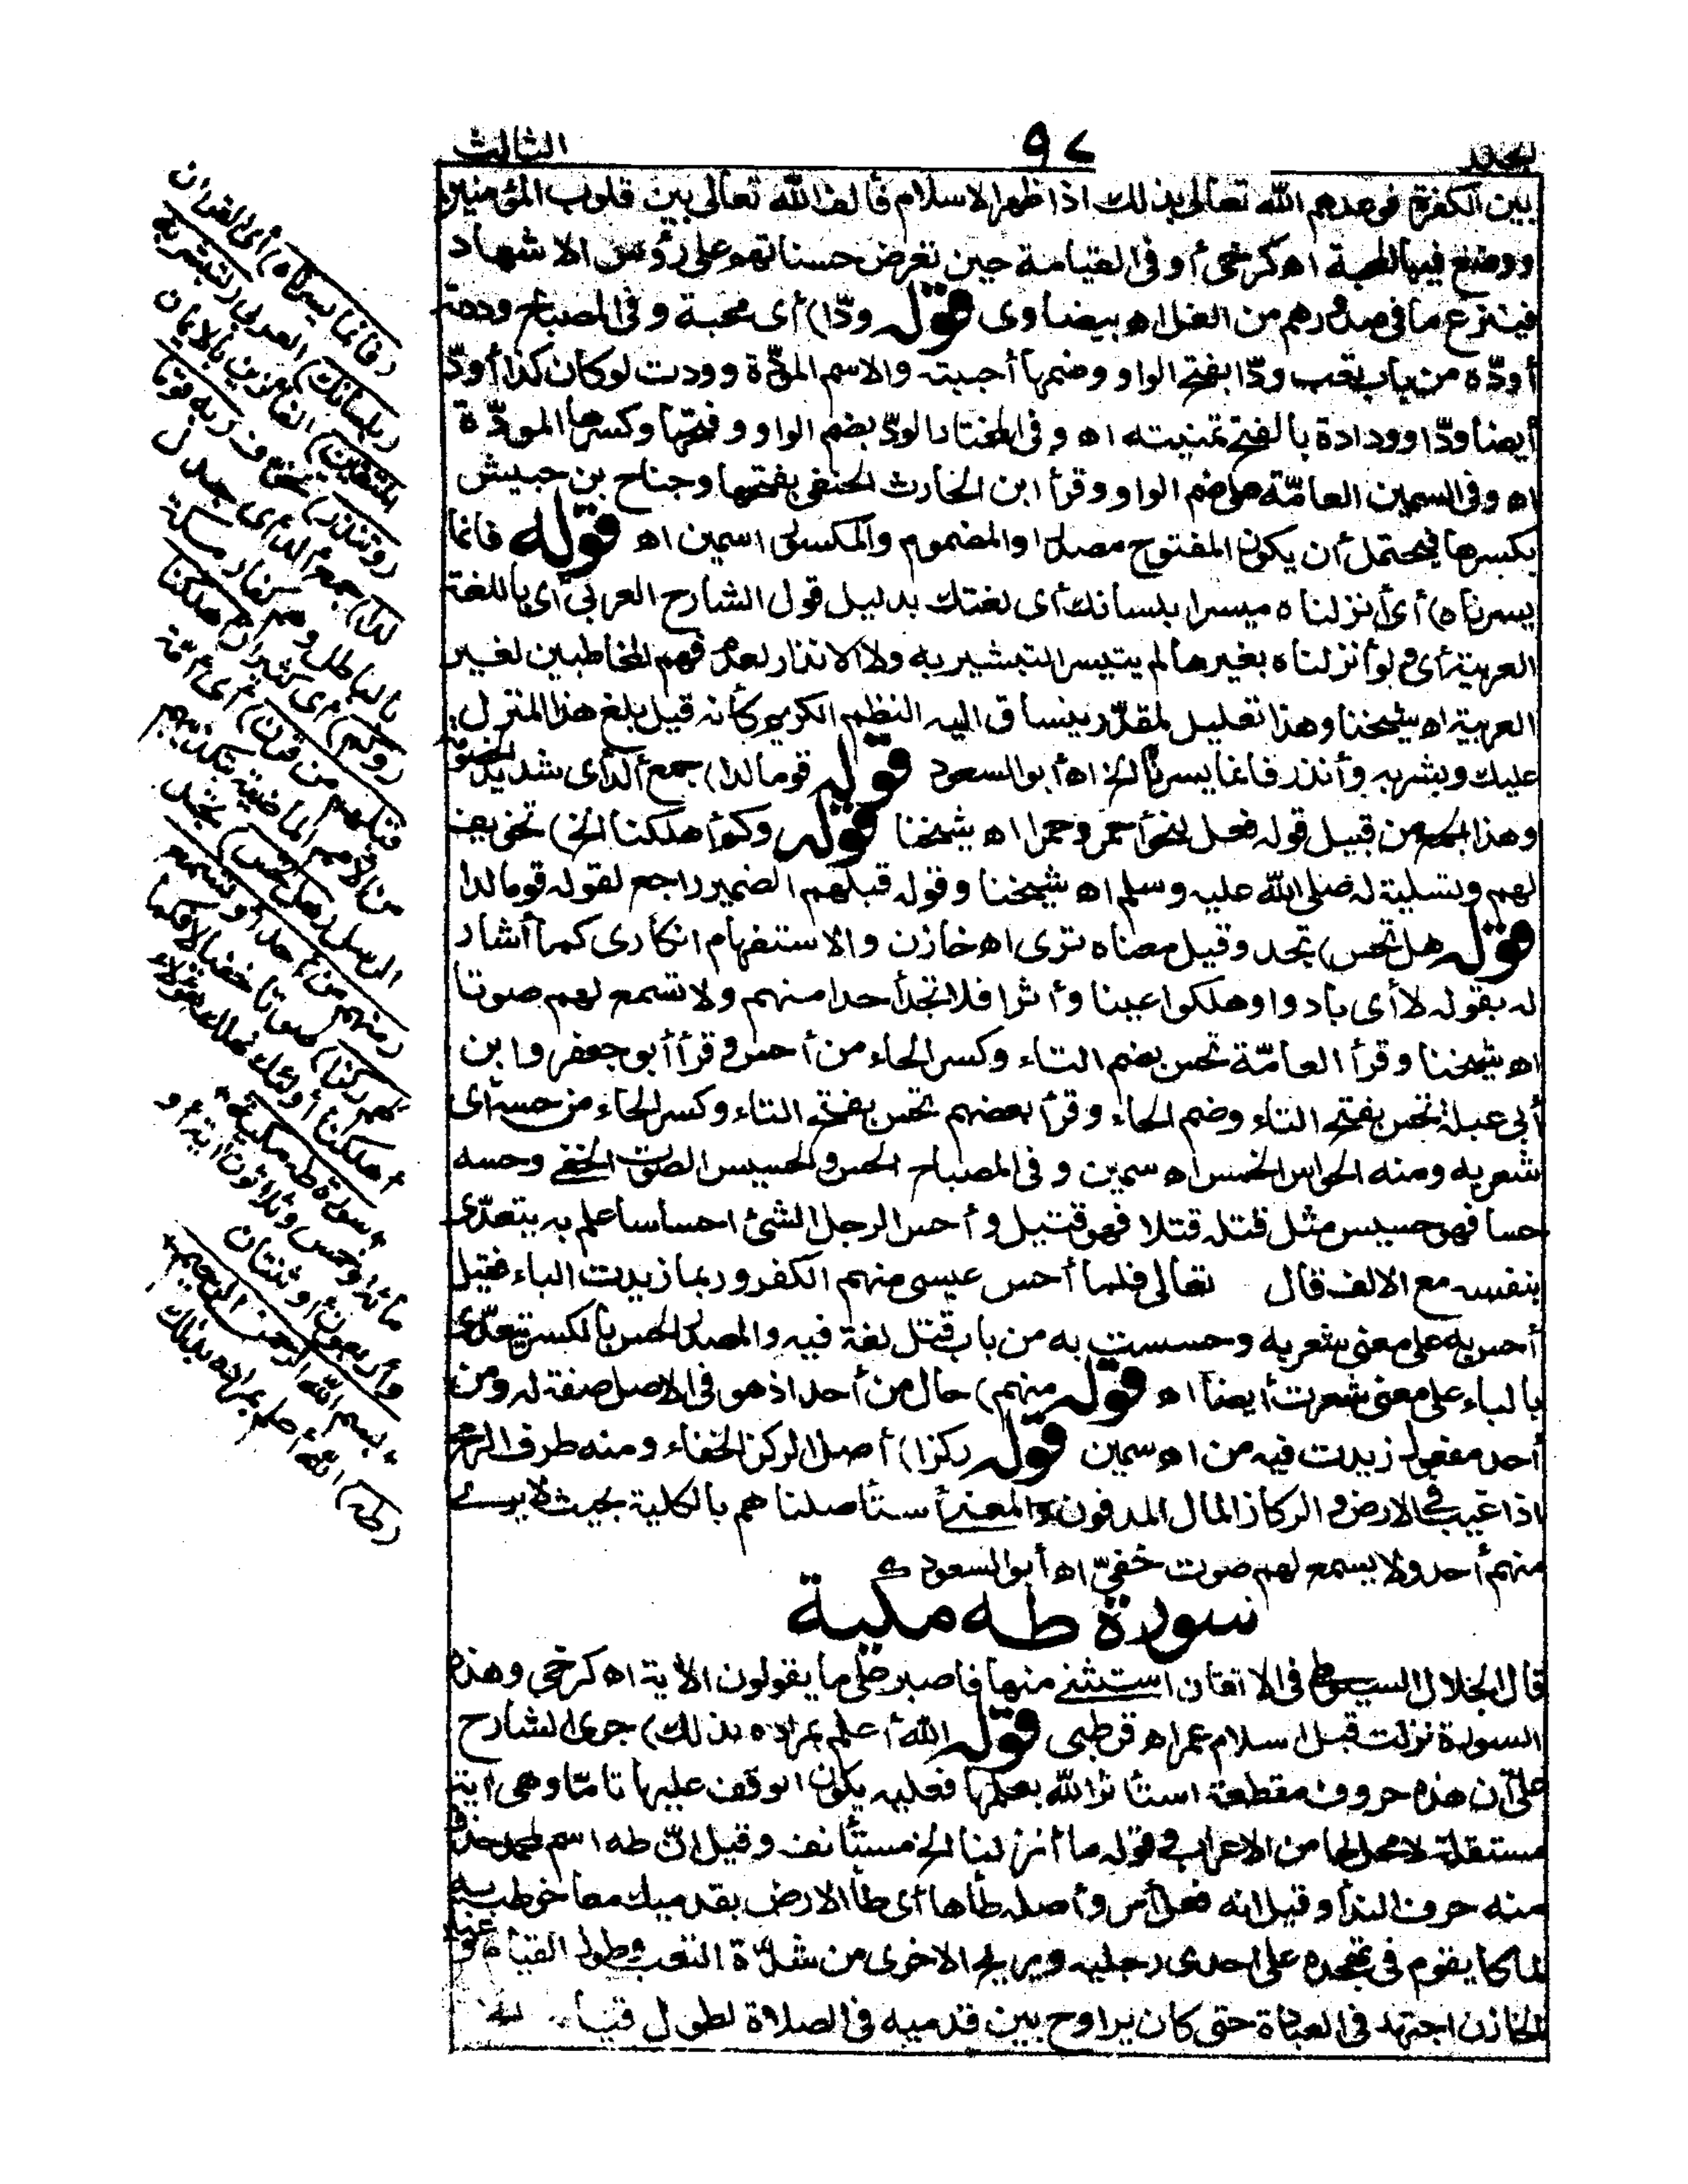 المجلد
٩٢
الثالث
بين الكفرة فوعدهم الله تعالى بذلك اذا ظهر الاسلام فألف الله تعالى بين قلوب المؤمنين
ووضع فيها المحبة اه كرخى أو فى القيامة حين تعرض حسناتهم على رؤس الاشهاد
فينزع ما فى صدورهم من الغل اه بيضاوى قوله ودّا) أى محبة وفى المصباح وددته
أودّه من باب تعب ودّا بفتح الواو وضمها أحببته والاسم المودّة ووددت لو كان كذا أودّ
أيضا ودّا وودادة بالفتح تمنيته اه وفى المختار الودّ بضم الواو وفتحها وكسرها المودّة
اه وفى السمين العامّة على ضم الواو وقرأ ابن الحارث الحنفى بفتحها وجناح بن حبيش
بكسرها فيحتمل أن يكون المفتوح مصدرا والمضموم والمكسور اسمين اه قوله فانما
يسرناه) أى أنزلناه ميسرا بلسانك أى لغتك بدليل قول الشارح العربى أى باللغة
العربية أى ولو أنزلناه بغيرها لم يتيسر التبشير به ولا الانذار لعدم فهم المخاطبين لغير
العربية اه شيخنا وهذا تعليل لمقدّر ينساق اليه النظم الكريم كأنه قيل بلغ هذا المنزل
عليك وبشر به وأنذر فانما يسرناه الخ اه أبو السعود قوله قوما لدا) جمع ألد أى شديد الخصومة
وهذا الجمع من قبيل قوله فعل لنحو أحمر وحمرا اه شيخنا قوله وكم أهلكنا الخ) تخويف
لهم وتسلية له صلى الله عليه وسلم اه شيخنا وقوله قبلهم الضمير راجع لقوله قوما لدا
قوله هل تحس) تجد وقيل معناه ترى اه خازن والاستفهام انكارى كما أشار
له بقوله لا أى بادوا وهلكوا عينا وأثرا فلا تجد أحدا منهم ولا تسمع لهم صوتا
اه شيخنا وقرأ العامّة تحس بضم التاء وكسر الحاء من أحس وقرأ أبو جعفر وابن
أبى عبلة تحس بفتح التاء وضم الحاء وقرأ بعضهم تحس بفتح التاء وكسر الحاء من حسه أى
شعر به ومنه الحواس الخمس اه سمين وفى المصباح الحس والحسيس الصوت الخفى وحسه
حسا فهو حسيس مثل قتله قتلا فهو قتيل وأحس الرجل الشئ احساسا علم به يتعدّى
بنفسه مع الالف قال تعالى فلما أحس عيسى منهم الكفر وربما زيدت الباء فقيل
أحس به على معنى شعر به وحسست به من باب قتل لغة فيه والمصدر الحس بالكسر يتعدّى
بالباء على معنى شعرت أيضا اه قوله منهم) حال من أحد اذ هو فى الاصل صفة له ومن
أحد مفعول زيدت فيه من اه سمين قوله ركزا) أصل الركز الخفاء ومنه طرف الرمح
اذا غيب فى الارض والركاز المال المدفون والمعنى أستأصلناهم بالكلية بحيث لا يرى
منهم أحد ولا يسمع لهم صوت خفىّ اه أبو السعود
سورة طه مكية
قال الجلال السيوطى فى الاتقان استثنى منها فاصبر على ما يقولون الآية اه كرخى وهذه
السورة نزلت قبل اسلام عمر اه قرطبى قوله الله أعلم بمراده بذلك) جرى الشارح
على أن هذه حروف مقطعة استأثر الله بعلمها فعليه يكون الوقف عليها تامّا وهى آية
مستقلة لا محل لها من الاعراب وقوله ما أنزلنا الخ مستأنف وقيل انّ طه اسم لمحمد حذف
منه حرف الندا وقيل انه فعل أمر وأصله طأها أى طأ الارض بقدميك معا خوطب به
لما كان يقوم فى تهجده على احدى رجليه ويريح الاخرى من شدّة التعب وطول القيام
الخازن اجتهد فى العبادة حتى كان يراوح بين قدميه فى الصلاة لطول
(فانما يسرناه) أى القرآن
(بلسانك) العربى (لتبشر به
المتقين) الفائزين بالايمان
(وتنذر) تخوف (به قوما
لدا) جمع ألد أى جدل
بالباطل وهم كفار مكة
(وكم) أى كثيرا (أهلكنا
قبلهم من قرن) أى أمّة
من الأمم الماضية بتكذيبهم
الرسل (هل تحس) تجد
(منهم من أحد أو تسمع
لهم ركزا) صوتا خفيا لا فكما
أهلكنا أولئك نهلك هؤلاء
*سورة طه مكية*
مائة وخمس وثلاثون آية أو
وأربعون أو ثنتان
*بسم الله الرحمن الرحيم*
(طه) الله أعلم بمراده بذلك